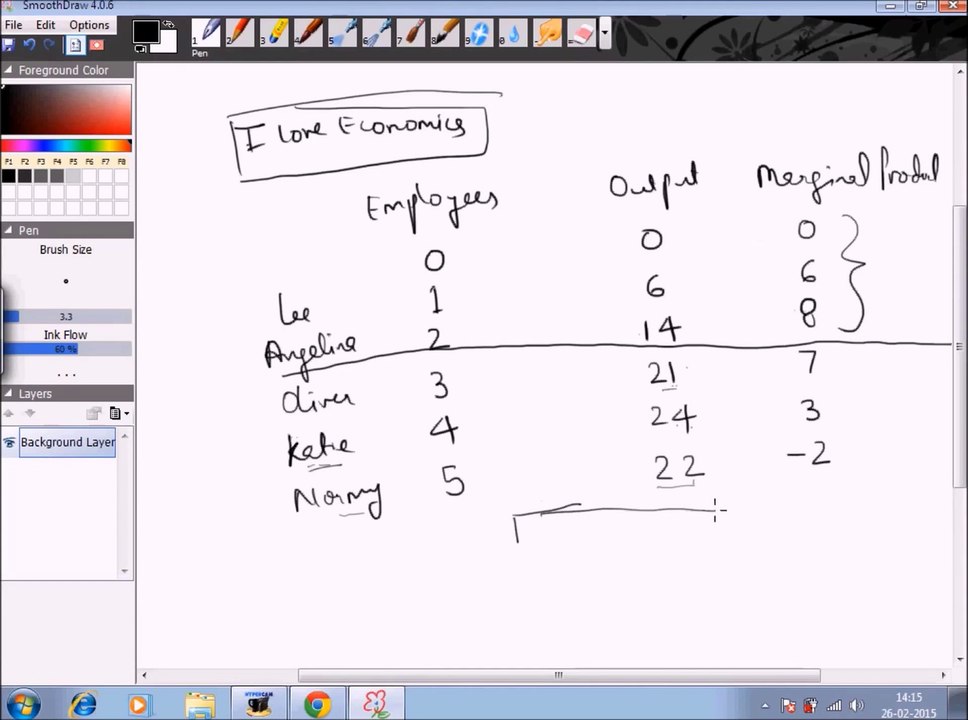 SmoothDraw 4.0.6
File Edit Options
1 2 3 4 5 6 7 8 9 0
Pen
Foreground Color
F1 F2 F3 F4 F5 F6 F7 F8
Pen
Brush Size
3.3
Ink Flow
60 %
...
Layers
Background Layer
I love Economics
Employees Output Marginal Product
0 0 0
Lee 1 6 6
Angelina 2 14 8
Oliver 3 21 7
Katie 4 24 3
Normy 5 22 -2
HYPERCAM
14:15
26-02-2015